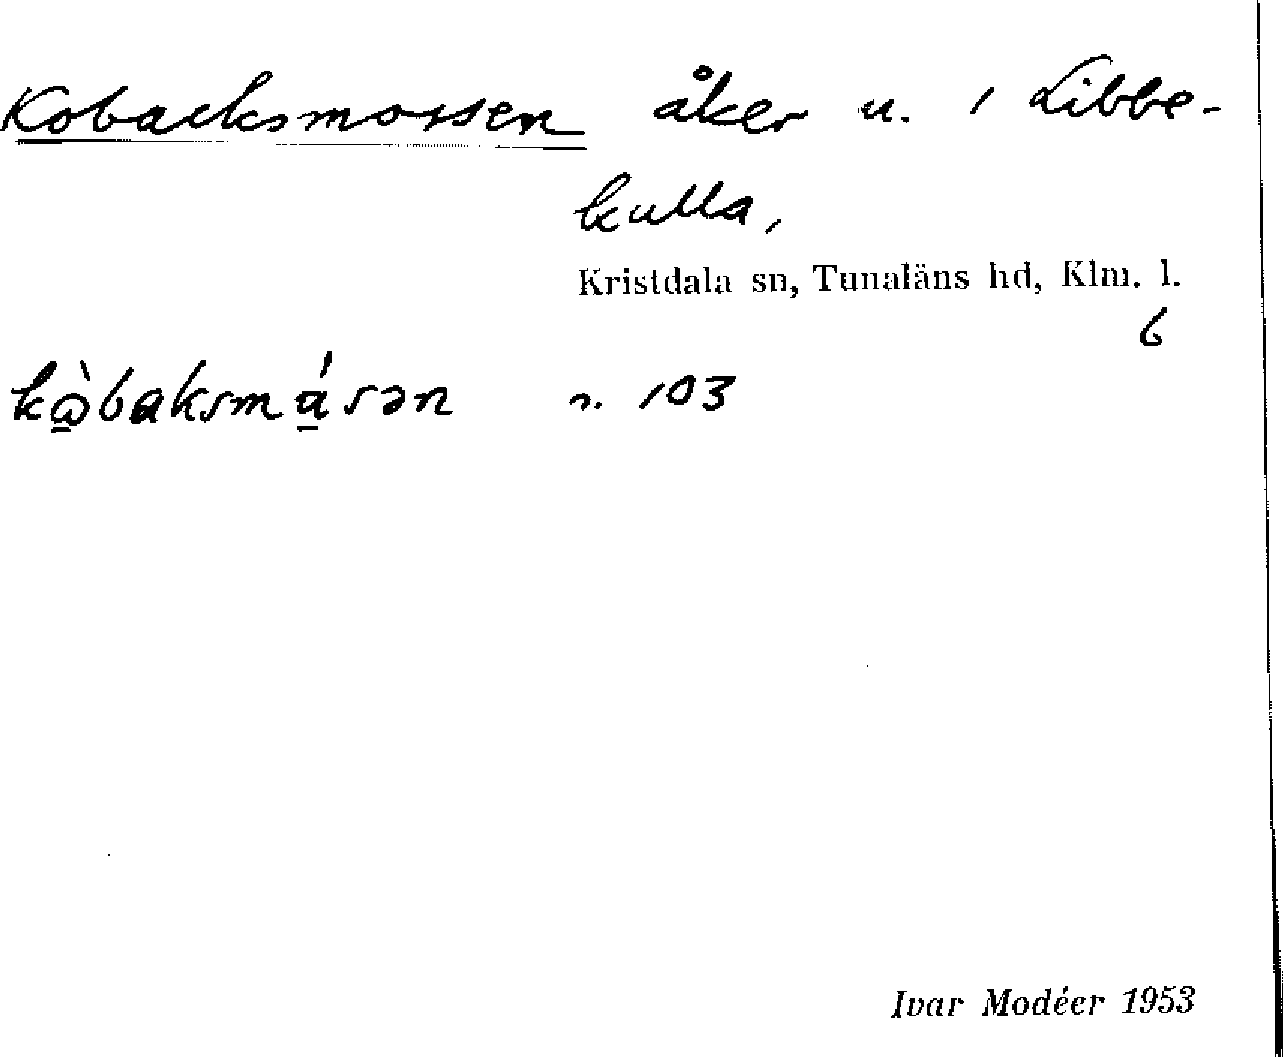 Kobacksmossen åker u. / Libbe-
kulla,
Kristdala sn, Tunaläns hd, Klm. l.
6
kὼ̱baksmá̱sən n. 103
Ivar Modéer 1953